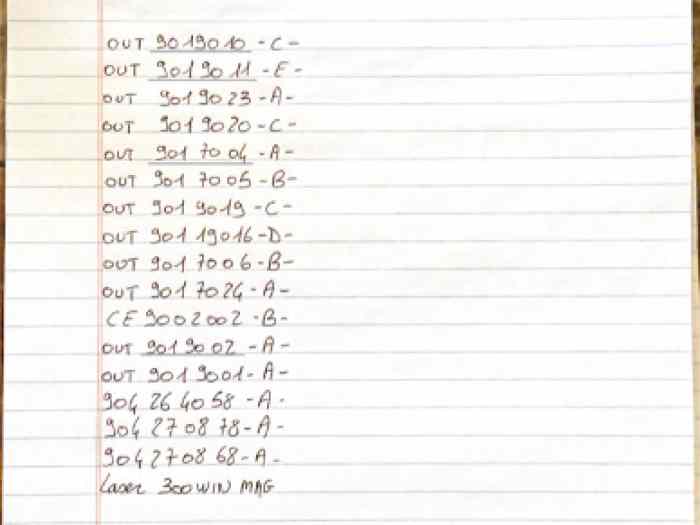 OUT 9019010 -C-
OUT 9019011 -E-
OUT 9019023 -A-
OUT 9019020 -C-
OUT 901 70 04 -A-
OUT 901 7005 -B-
OUT 901 9019 -C-
OUT 901 19016 -D-
OUT 901 7006 -B-
OUT 901 7024 -A-
CE 9002002 -B-
OUT 9019002 -A-
OUT 901 9001 -A-
904 26 40 58 -A-
904 27 08 78 -A-
904 27 08 68 -A-
Laser 300 WIN MAG